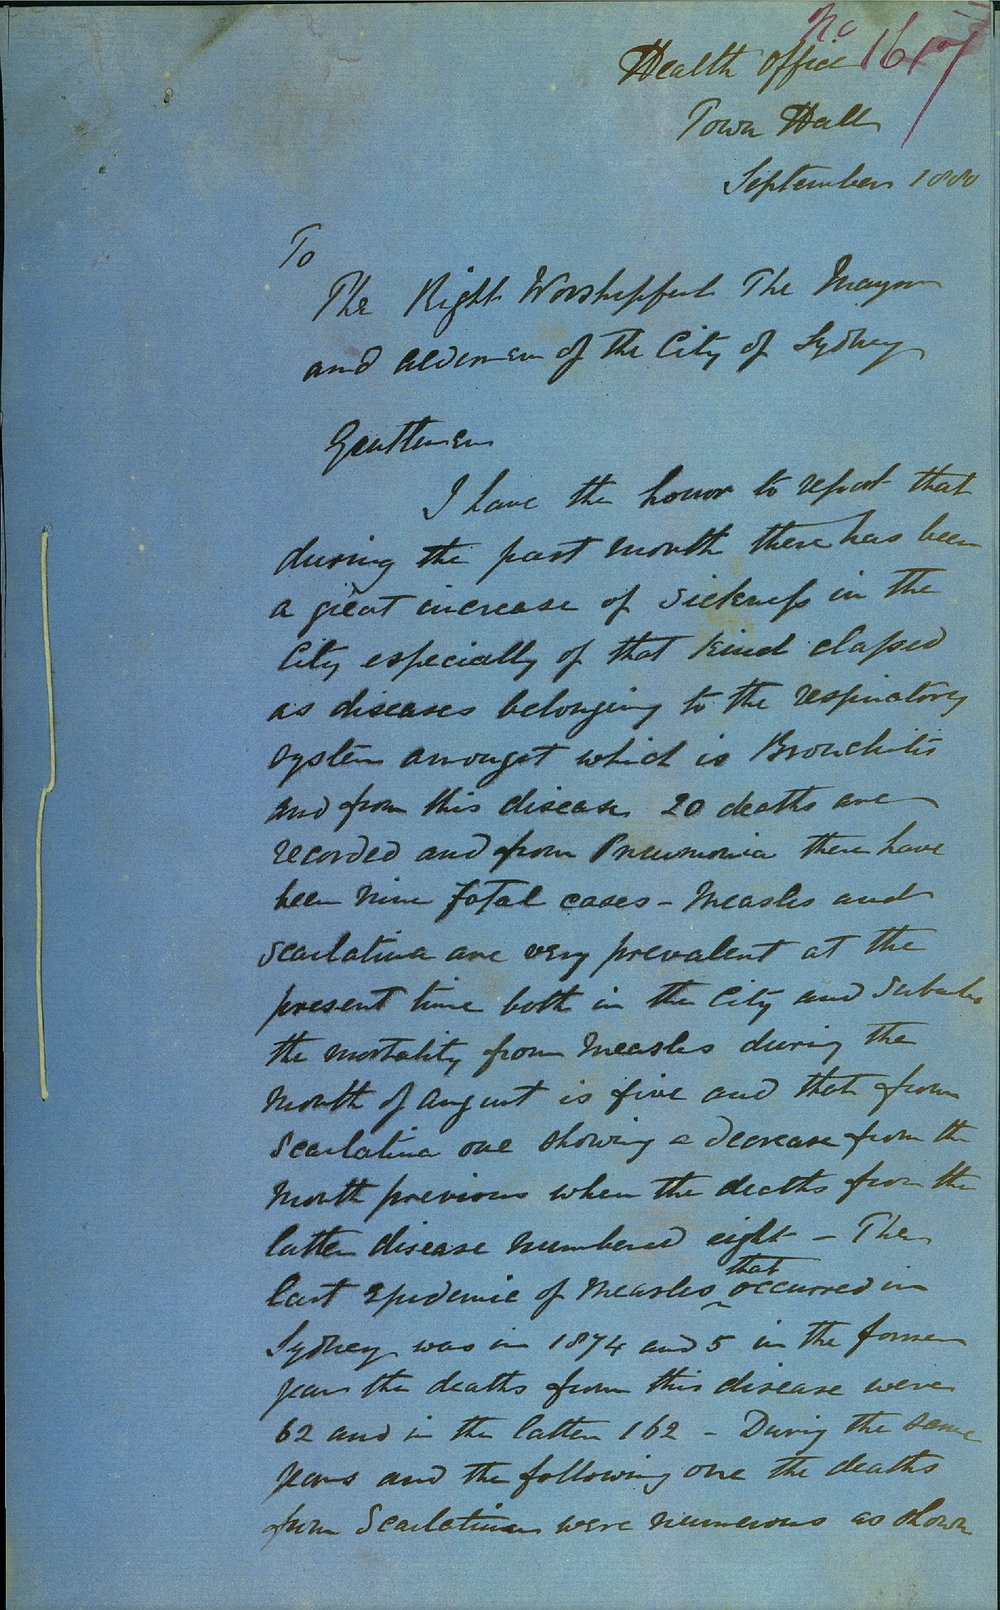 No 1617
Health Office
Town Hall
September 1880
To
The Right Worshipful The Mayor
and Aldermen of the City of Sydney
Gentlemen
I have the honor to report that
during the past month there has been
a great increase of Sickness in the
City especially of that kind classed
as diseases belonging to the respiratory
system amongst which is Bronchitis
and from this disease 20 deaths are
recorded and from Pneumonia there have
been nine fatal cases - Measles and
Scarlatina are very prevalent at the
present time both in the City and Suburbs
the mortality from Measles during the
Month of August is five and that from
Scarlatina one showing a decrease from the
Month previous when the deaths from the
latter disease numbered eight - The
last Epidemic of Measles that occurred in
Sydney was in 1874 and 5 in the former
year the deaths from this disease were
62 and in the latter 162 - During the same
years and the following one the deaths
from Scarlatina were numerous as shown